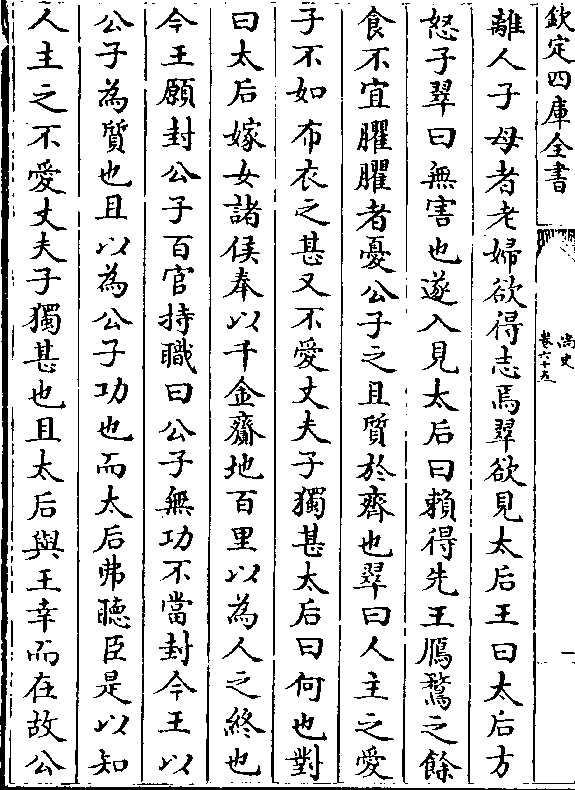 欽定四庫全書
尚史
卷六十五
一
離人子母者老婦欲得志焉翠欲見太后王曰太后方
怒子翠曰無害也遂入見太后曰賴得先王鴈鶩之餘
食不宜臞臞者憂公子之且質於齊也翠曰人主之愛
子不如布衣之甚又不愛丈夫子獨甚太后曰何也對
曰太后嫁女諸侯奉以千金齎地百里以為人之終也
今王願封公子百官持職曰公子無功不當封今王以
公子為質也且以為公子功也而太后弗聽臣是以知
人主之不愛丈夫子獨甚也且太后與王幸而在故公